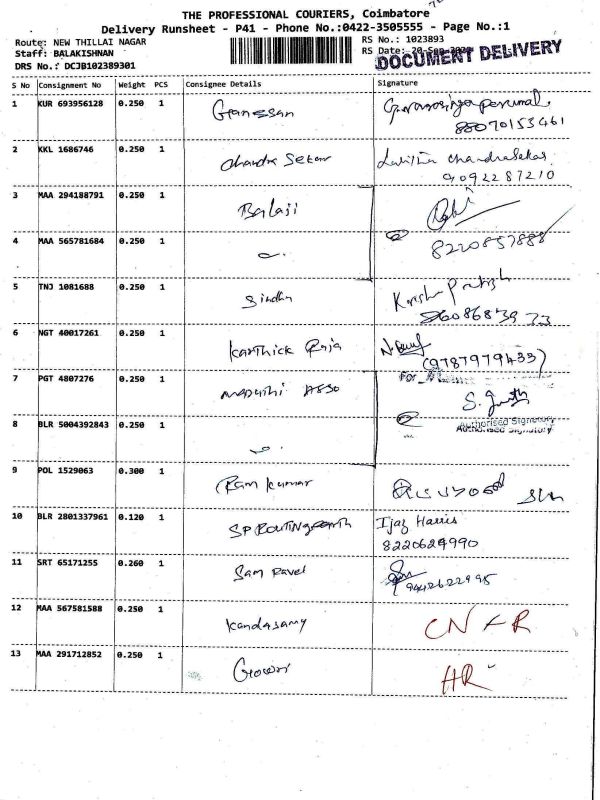 THE PROFESSIONAL COURIERS, Coimbatore
Delivery Runsheet - P41 - Phone No.:0422-3505555 - Page No.:1
Route: NEW THILLAI NAGAR
RS No.: 1023893
Staff: BALAKISHNAN
RS Date: 20-Sep-
DOCUMENT DELIVERY
DRS No.: DCJB102389301
S No Consignment No Weight PCS Consignee Details Signature
1 KUR 693956128 0.250 1 Ganessan
8807015346 1
2 KKL 1686746 0.250 1 Chandra Sekar Lalitha Chandrasekar
9092287210
3 MAA 294188791 0.250 1 Balaji
4 MAA 565781684 0.250 1
8220857888
5 TNJ 1081688 0.250 1 Sindhu
6 NGT 40017261 0.250 1 Karthick Raja
(9787979433)
7 PGT 4807276 0.250 1 Maruthi
For
8 BLR 5004392843 0.250 1
Authorised Signatory
9 POL 1529063 0.300 1 Ram Kumar
10 BLR 2801337961 0.120 1 Ijaz Harris
8220624990
11 SRT 65171255 0.260 1 Sam Ravel
9442622995
12 MAA 567581588 0.250 1 Kandasamy
13 MAA 291712852 0.250 1 Gowri HR